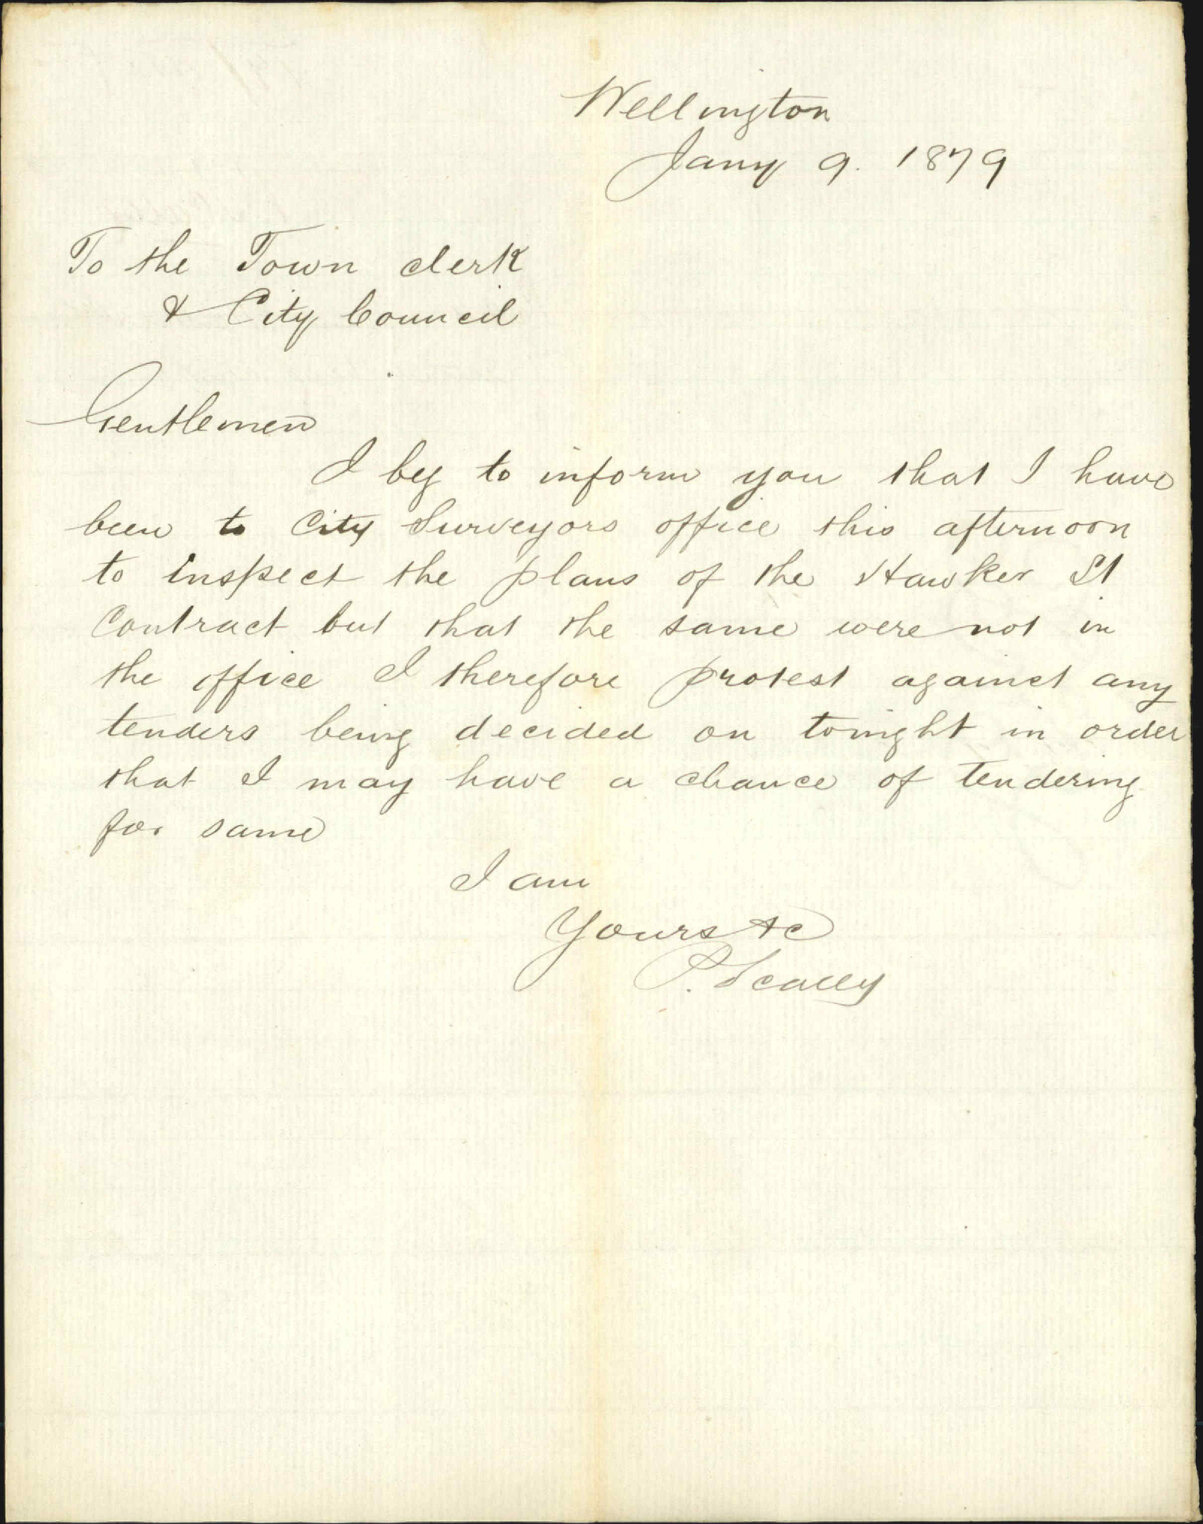 Wellington
Jany 9. 1879
To the Town clerk
& City Council
Gentlemen
I beg to inform you that I have
been to City Surveyors office this afternoon
to inspect the plans of the Hawker St
Contract but that the same were not in
the office I therefore protest against any
tenders being decided on tonight in order
that I may have a chance of tendering
for same
I am
Yours &c
P. Scally